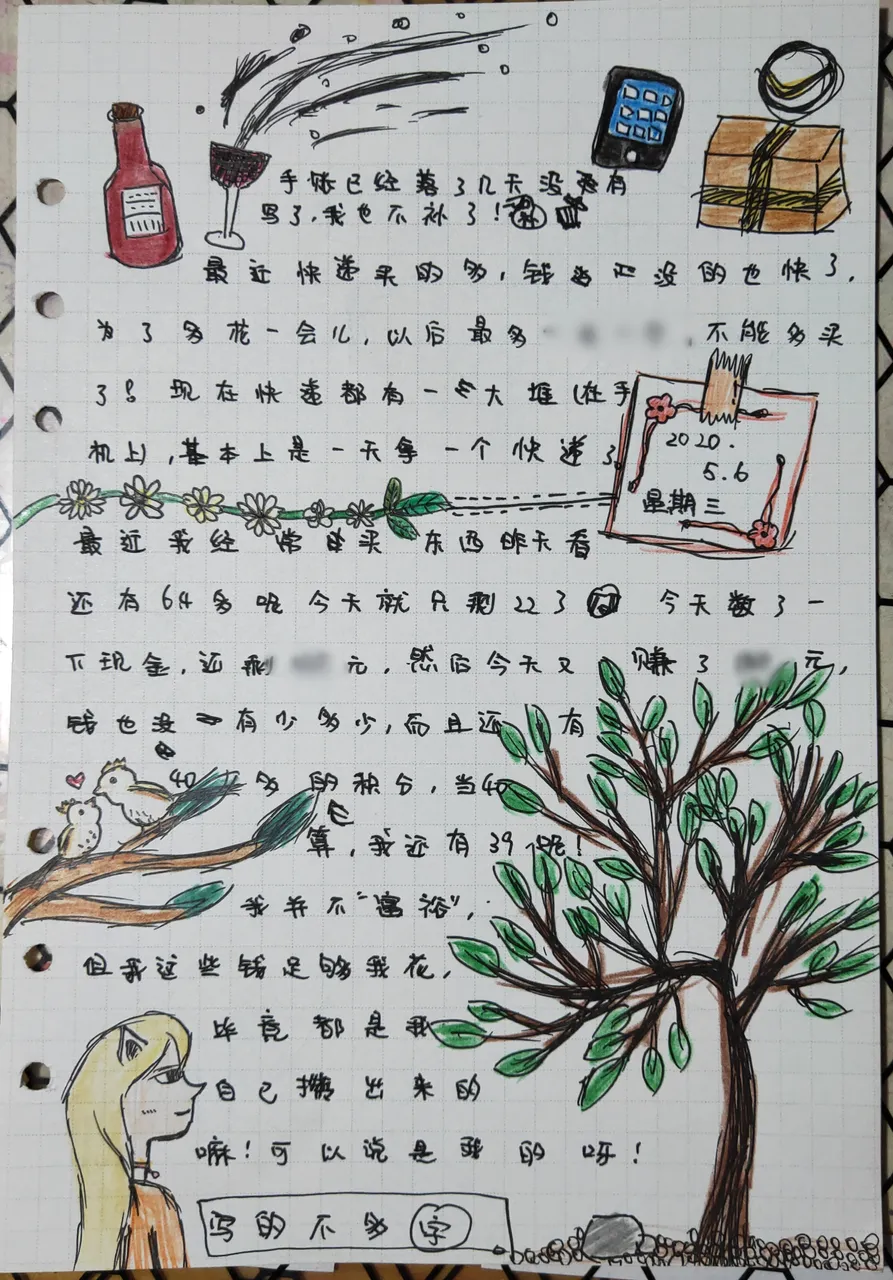 手账已经落了几天没更有
写了，我也不补了！
最近快递买的多，钱 没的也快了，
为了多花一会儿，以后最多 ，不能多买
了！现在快递都有一大堆（在手
机上），基本上是一天拿一个快递了。
2020.
5.6
星期三
最近我经常 买东西昨天看
还有64多呢今天就只剩22了 今天数了一
下现金，还剩 元，然后今天又赚了 元，
钱也没有少多少，而且还有
40 多的积分，当40
算，我还有39呢！
我并不“富裕”，
但我这些钱足够我花，
毕竟都是我
自己攒出来的
嘛！可以说是我的呀！
写的不多字